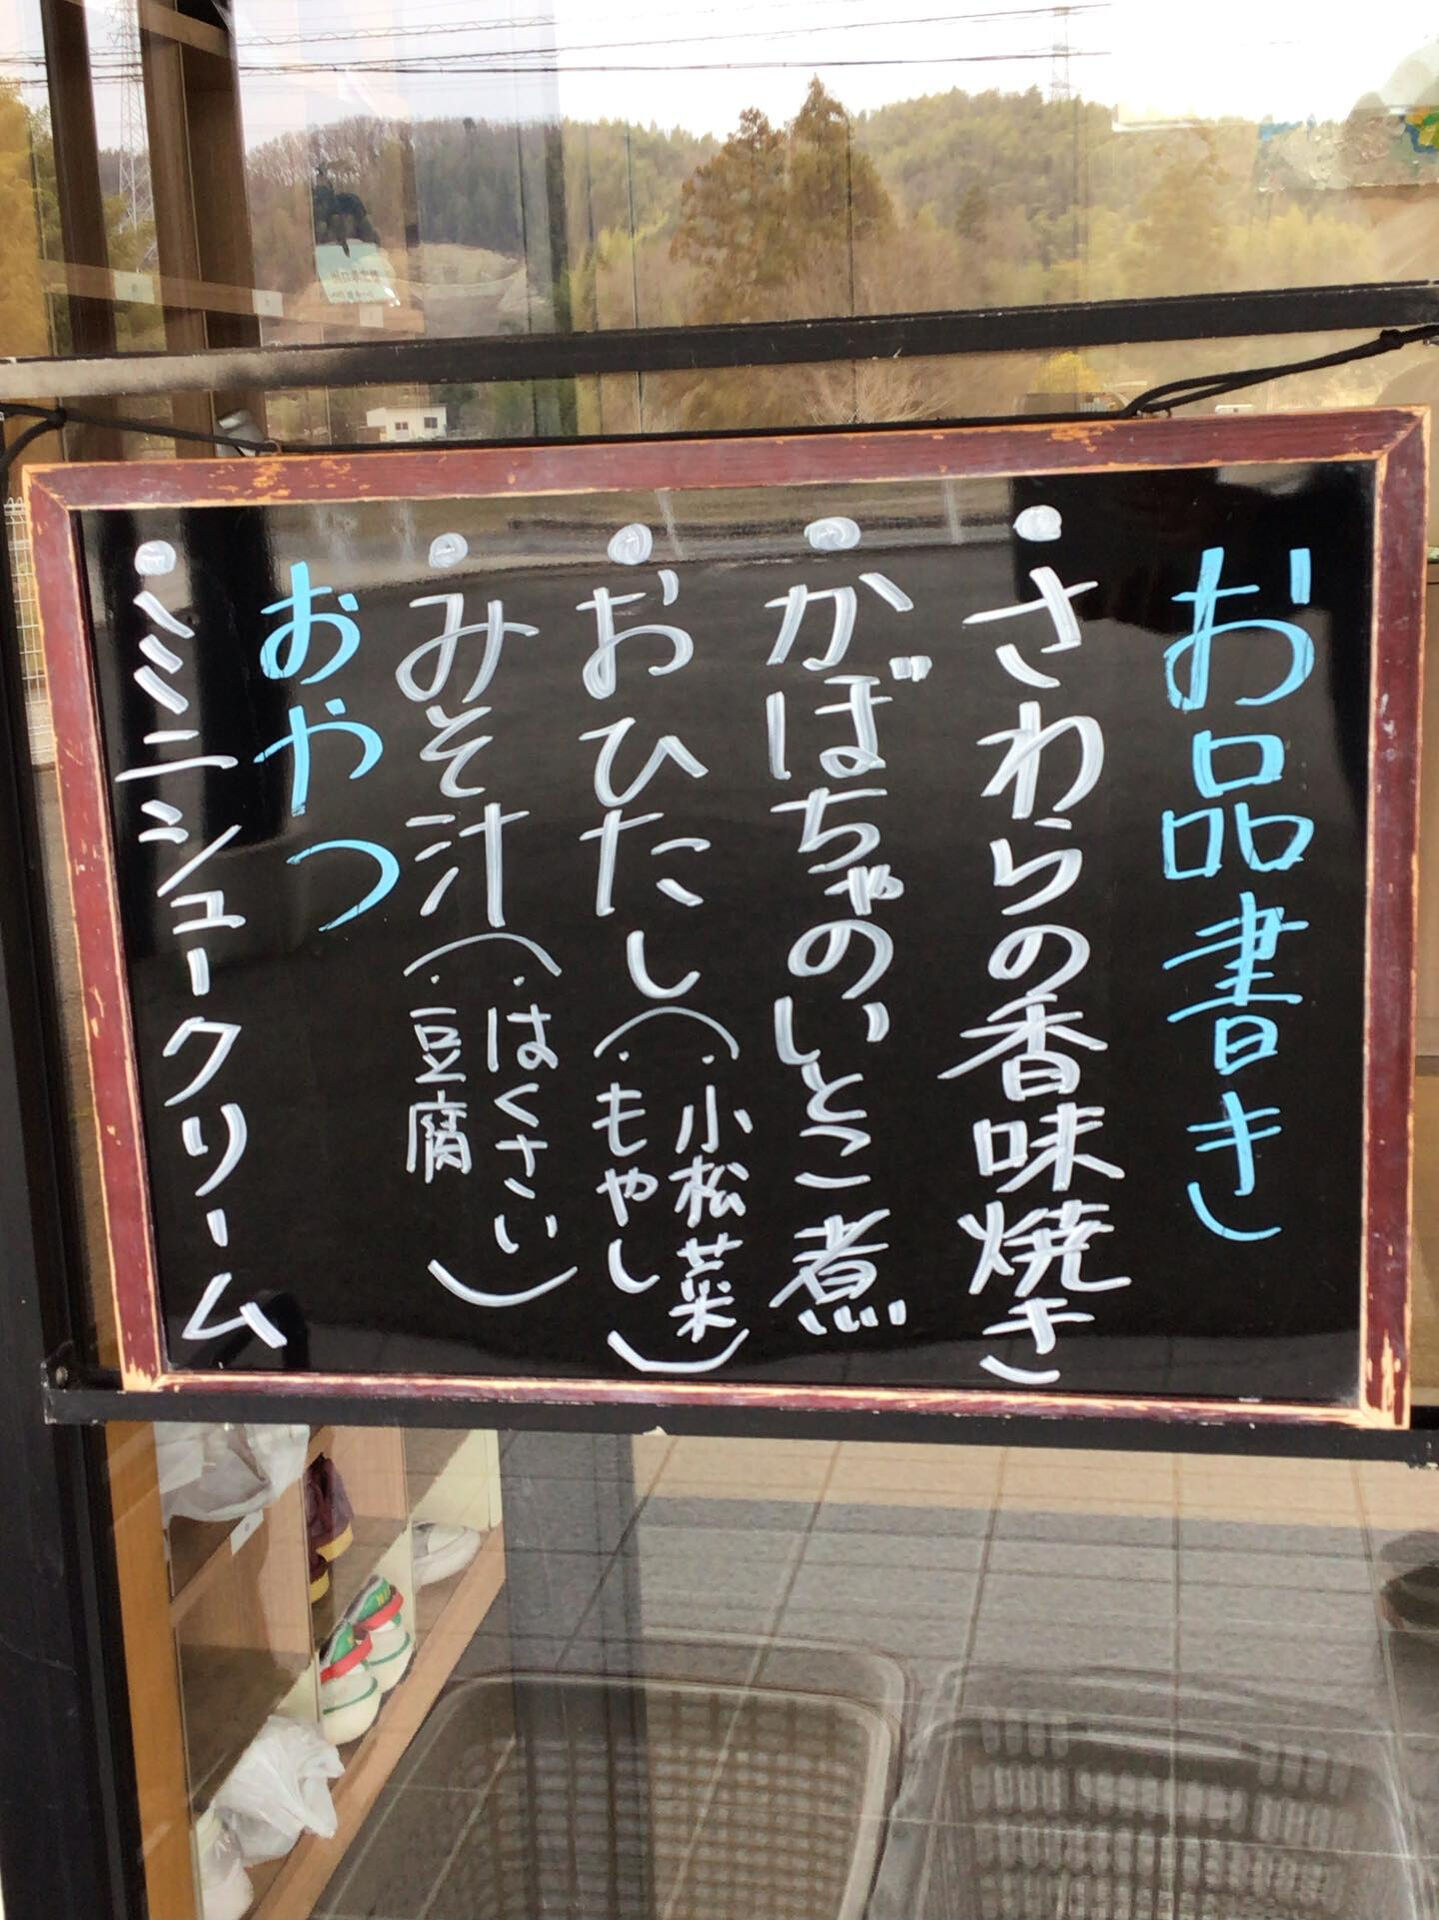 お品書き
・さわらの香味焼き
・かぼちゃのいとこ煮
・おひたし(・小松菜・もやし)
・みそ汁(・はくさい・豆腐)
おやつ
・ミニシュークリーム